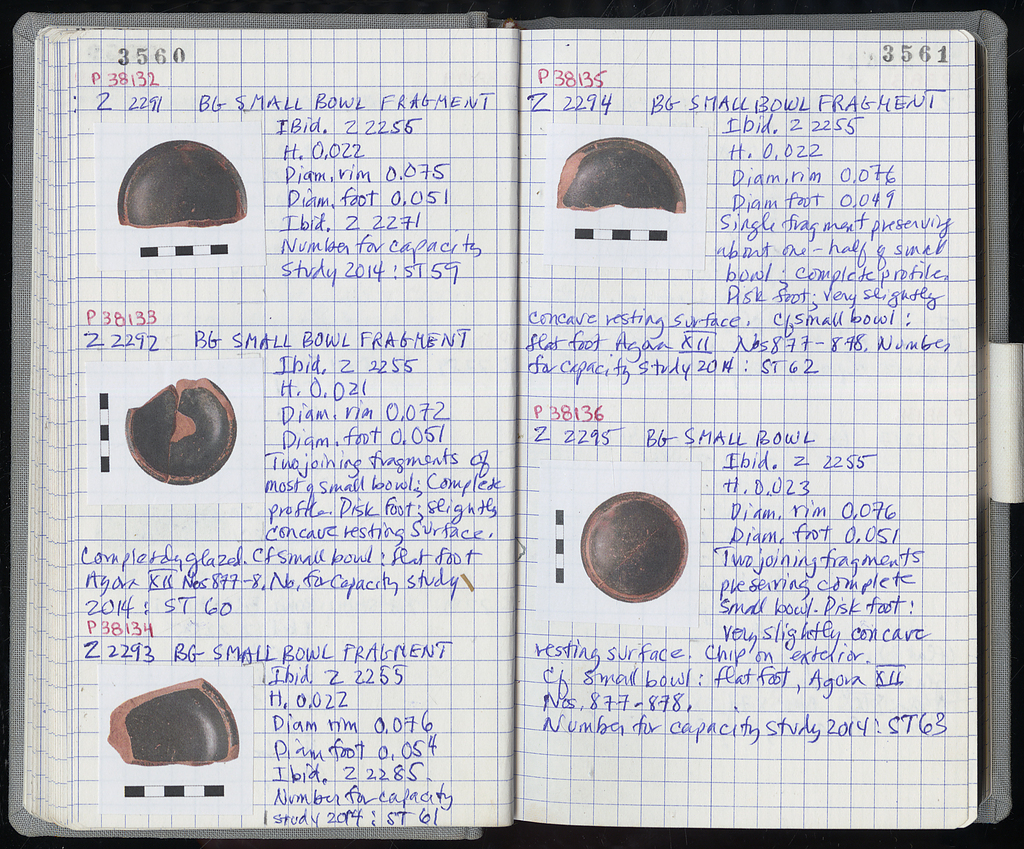 3560
P 38132
Z 2291 BG SMALL BOWL FRAGMENT
IBid. Z 2255
H. 0.022
Diam. rim 0.075
Diam. foot 0.051
Ibid. Z 2271
Number for capacity
study 2014 : ST 59
P 38133
Z 2292 BG SMALL BOWL FRAGMENT
Ibid. Z 2255
H. 0.021
Diam. rim 0.072
Diam. foot 0.051
Two joining fragments of
most of small bowl; Complete
profile. Disk foot; slightly
concave resting surface.
Completely glazed. Cf small bowl : flat foot
Agora XII Nos 877-8. No. for Capacity study
2014 : ST 60
P 38134
Z 2293 BG SMALL BOWL FRAGMENT
Ibid. Z 2255
H. 0.022
Diam rim 0.076
Diam foot 0.054
Ibid. Z 2285.
Number for capacity
study 2014 : ST 61
3561
P 38135
Z 2294 BG SMALL BOWL FRAGMENT
Ibid. Z 2255
H. 0.022
Diam. rim 0.076
Diam foot 0.049
Single fragment preserving
about one-half of small
bowl; Complete profile.
Disk foot; very slightly
concave resting surface. Cf small bowl :
flat foot Agora XII Nos 877-878. Number
for capacity study 2014 : ST 62
P 38136
Z 2295 BG SMALL BOWL
Ibid. Z 2255
H. 0.023
Diam. rim 0.076
Diam. foot 0.051
Two joining fragments
preserving complete
small bowl. Disk foot :
very slightly concave
resting surface. Chip on exterior.
Cf small bowl : flat foot, Agora XII
Nos. 877-878.
Number for capacity study 2014 : ST 63